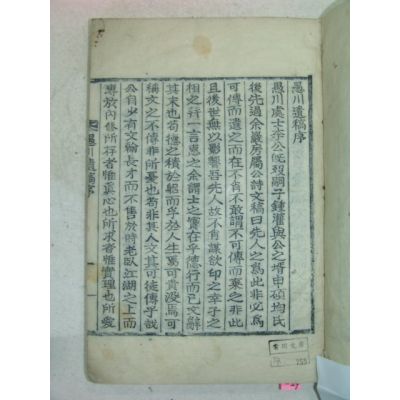 愚川遺稿序
愚川處士李公旣歿嗣子鍾灌與公之壻申碩均氏
後先過余嚴房屬公詩文稿曰先人之爲此非必爲
可傳而遺之而在不肖不敢謂不可傳而棄之非此
且後世無以影響吾先人故不肖謀欲印之幸子之
相之玆一言惠之余謂士之實在乎德行而已文辭
其末也苟德之積於躬而孚於人生爲可貴沒爲可
稱文之不傳非所憂也苟非其人文其可徒傳乎哉
公自少有文翰長才而不售於時老臥江湖之上而
專於內修所存者雅眞心也所求者雅實理也所愛
愚川遺稿序
一